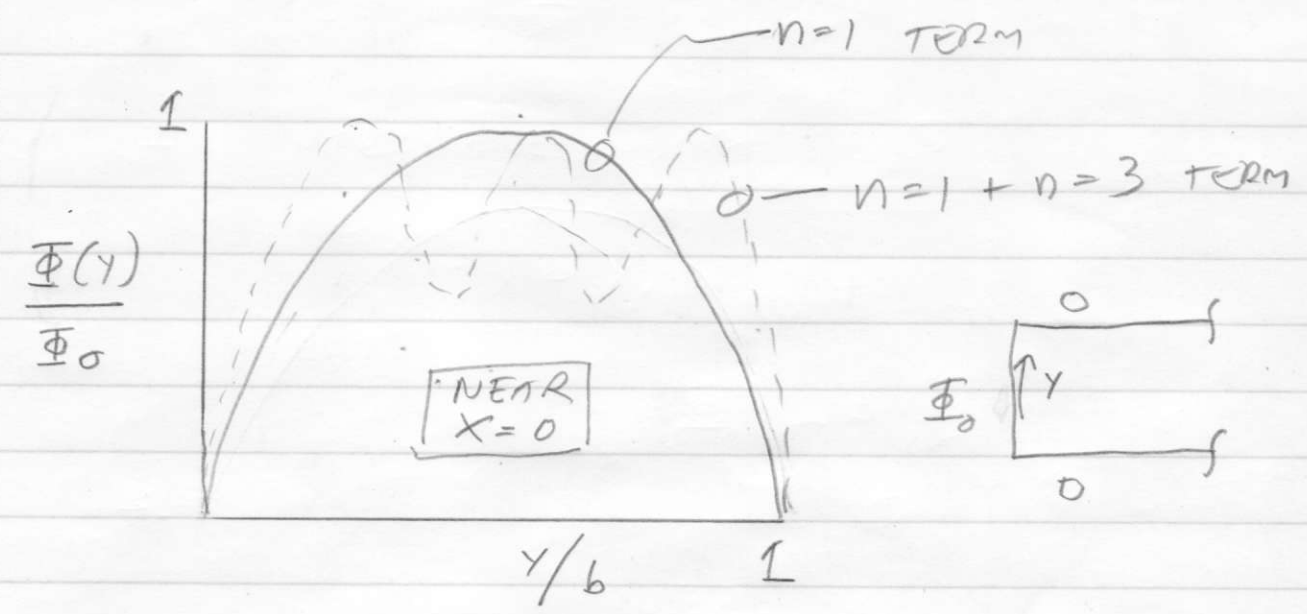 n=1 TERM
1
n=1 + n=3 TERM
Φ(y)
Φ₀
0
NEAR
X=0
Φ₀
y
0
y/b
1